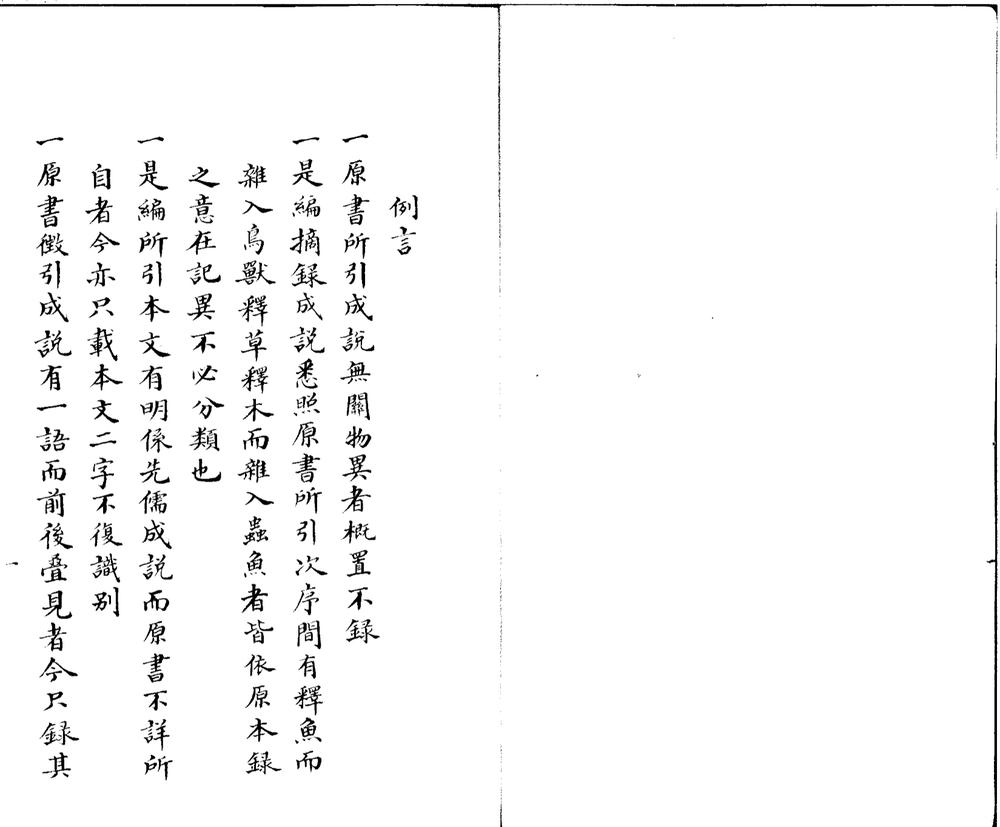 例言
一原書所引成說無關物異者概置不錄
一是編摘録成説悉照原書所引次序間有釋魚而
雜入鳥獸釋草釋木而雜入蟲魚者皆依原本録
之意在記異不必分類也
一是編所引本文有明係先儒成説而原書不詳所
自者今亦只載本文二字不復識别
一原書徴引成説有一語而前後疊見者今只録其